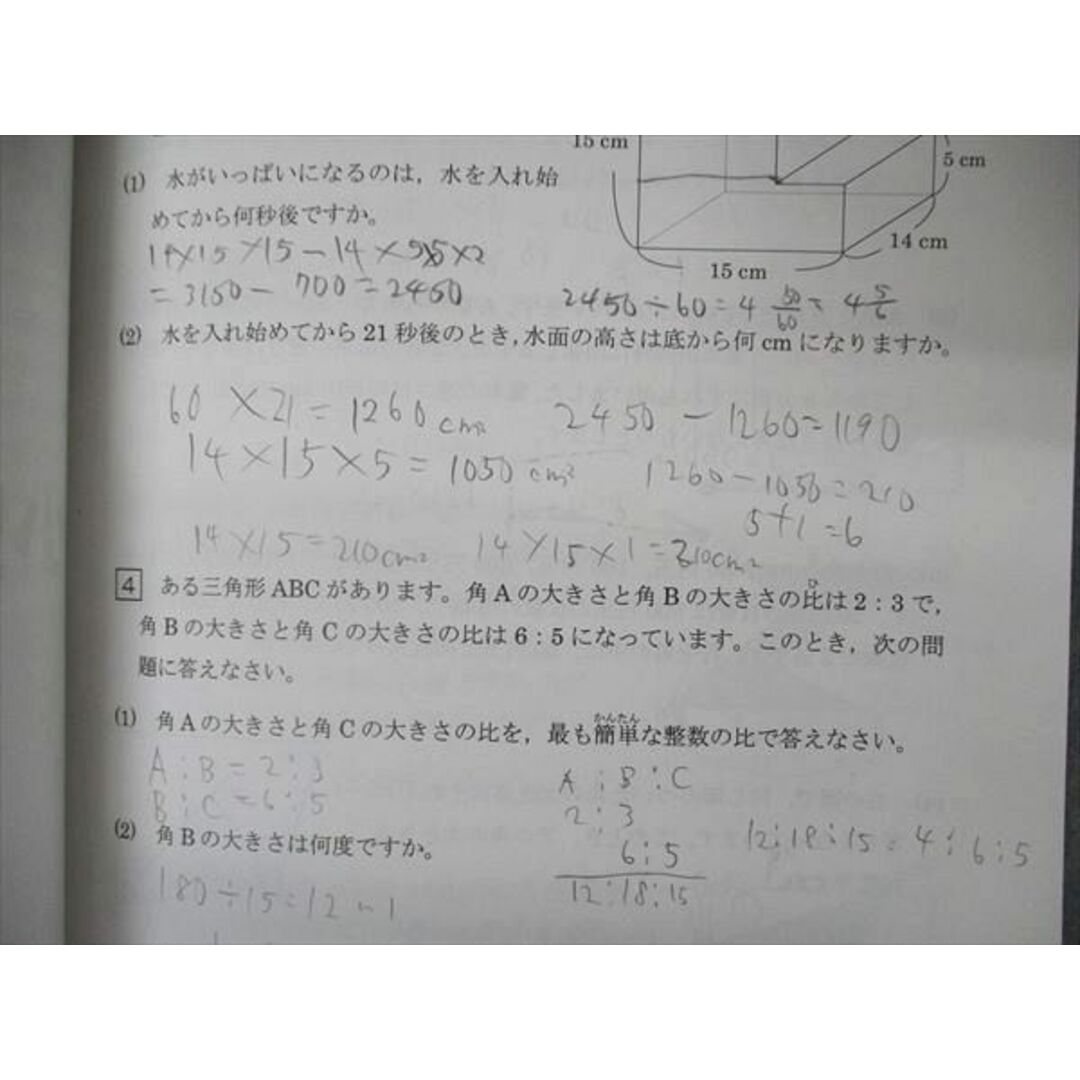 15 cm
5 cm
14 cm
15 cm
(1) 水がいっぱいになるのは，水を入れ始
めてから何秒後ですか。
14×15×15−14×5×5×2
=3150−700=2450
2450÷60=4 50/60=4 5/6
(2) 水を入れ始めてから 21 秒後のとき，水面の高さは底から何 cm になりますか。
60×21=1260
2450−1260=1190
14×15×5=1050
1260−1050=210
5+1=6
14×15=210cm²
14×15×1=210cm²
4 ある三角形 ABC があります。角 A の大きさと角 B の大きさの比は 2：3 で，
角 B の大きさと角 C の大きさの比は 6：5 になっています。このとき，次の問
題に答えなさい。
(1) 角 A の大きさと角 C の大きさの比を，最も簡単な整数の比で答えなさい。
A:B=2:3
B:C=6:5
A:B:C
2:3
6:5
12:18:15
12:18:15=4:6:5
(2) 角 B の大きさは何度ですか。
180÷15=12